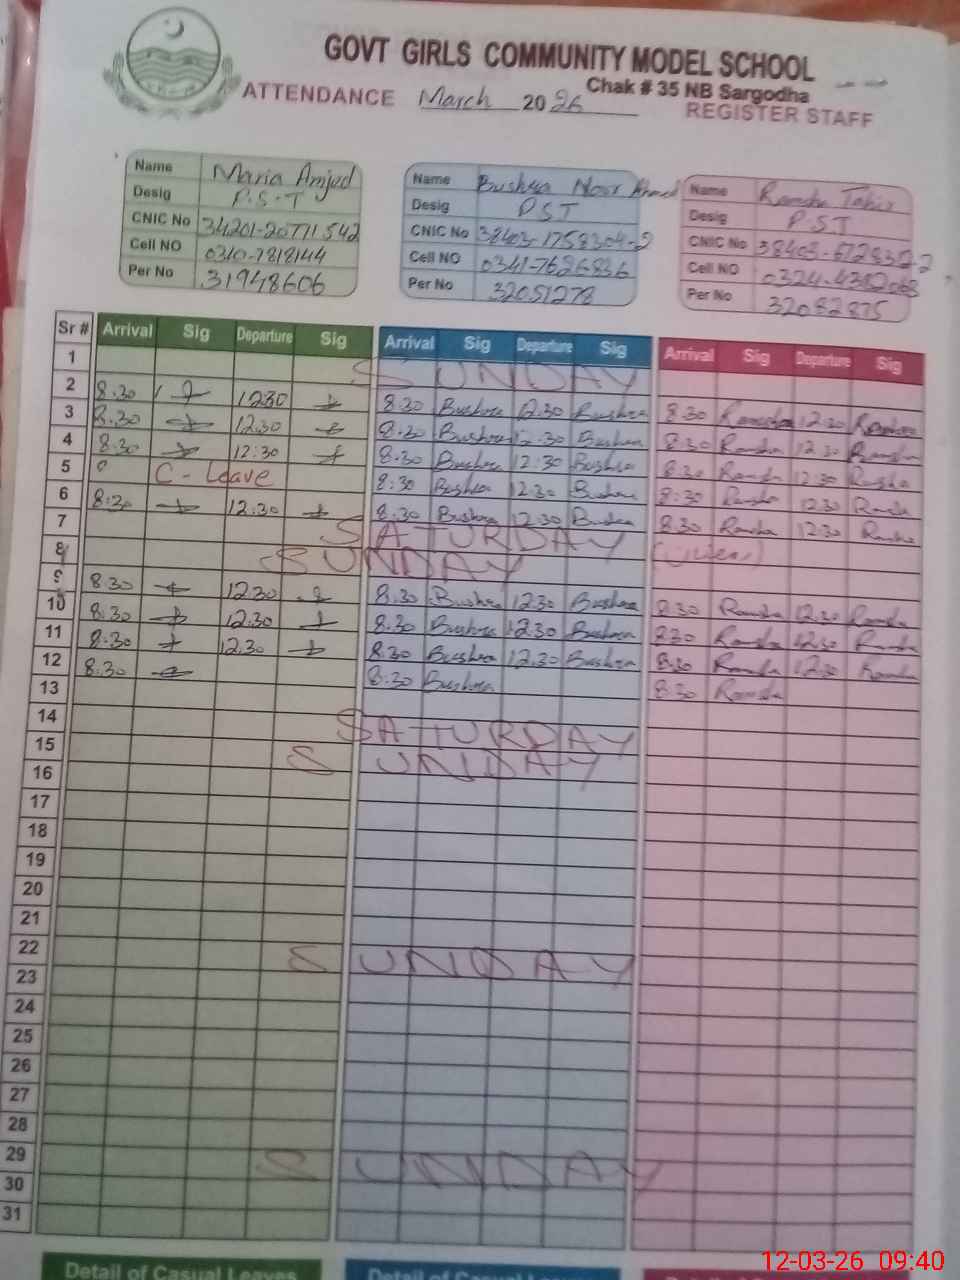 GOVT GIRLS COMMUNITY MODEL SCHOOL
Chak # 35 NB Sargodha
ATTENDANCE March 2026 REGISTER STAFF
Name Maria Amjad
Desig P.S.T
CNIC No 34201-20771542
Cell NO 0310-7818144
Per No 31948606
Name Bushra Noor Ahmad
Desig PST
CNIC No 38403-1758304-2
Cell NO 0341-7626836
Per No 32051278
Name Ramsha Tahir
Desig P.S.T
CNIC No
Cell NO
Per No 32082875
Sr # Arrival Sig Departure Sig Arrival Sig Departure Sig Arrival Sig Departure Sig
1 SUNDAY
2 8:30 12:30 8:30 Bushra 12:30 Bushra 8:30 Ramsha 12:30 Ramsha
3 8:30 12:30 8:30 Bushra 12:30 Bushra 8:30 Ramsha 12:30 Ramsha
4 8:30 12:30 8:30 Bushra 12:30 Bushra 8:30 Ramsha 12:30 Ramsha
5 C-Leave 8:30 Bushra 12:30 Bushra 8:30 Ramsha 12:30 Ramsha
6 8:30 12:30 8:30 Bushra 12:30 Bushra 8:30 Ramsha 12:30 Ramsha
7 SATURDAY
8 SUNDAY
9 8:30 12:30 8:30 Bushra 12:30 Bushra 8:30 Ramsha 12:30 Ramsha
10 8:30 12:30 8:30 Bushra 12:30 Bushra 8:30 Ramsha 12:30 Ramsha
11 8:30 12:30 8:30 Bushra 12:30 Bushra 8:30 Ramsha 12:30 Ramsha
12 8:30 8:30 Bushra 8:30 Ramsha
13
14 SATURDAY
15 SUNDAY
16
17
18
19
20
21
22 SUNDAY
23
24
25
26
27
28
29 SUNDAY
30
31
Detail of Casual Leaves Detail of Casual Leaves
12-03-26 09:40